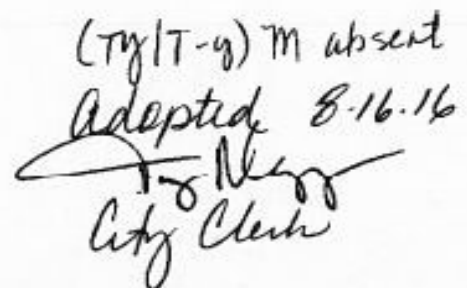 (Ty/T-y) M absent
Adopted 8-16-16
City Clerk